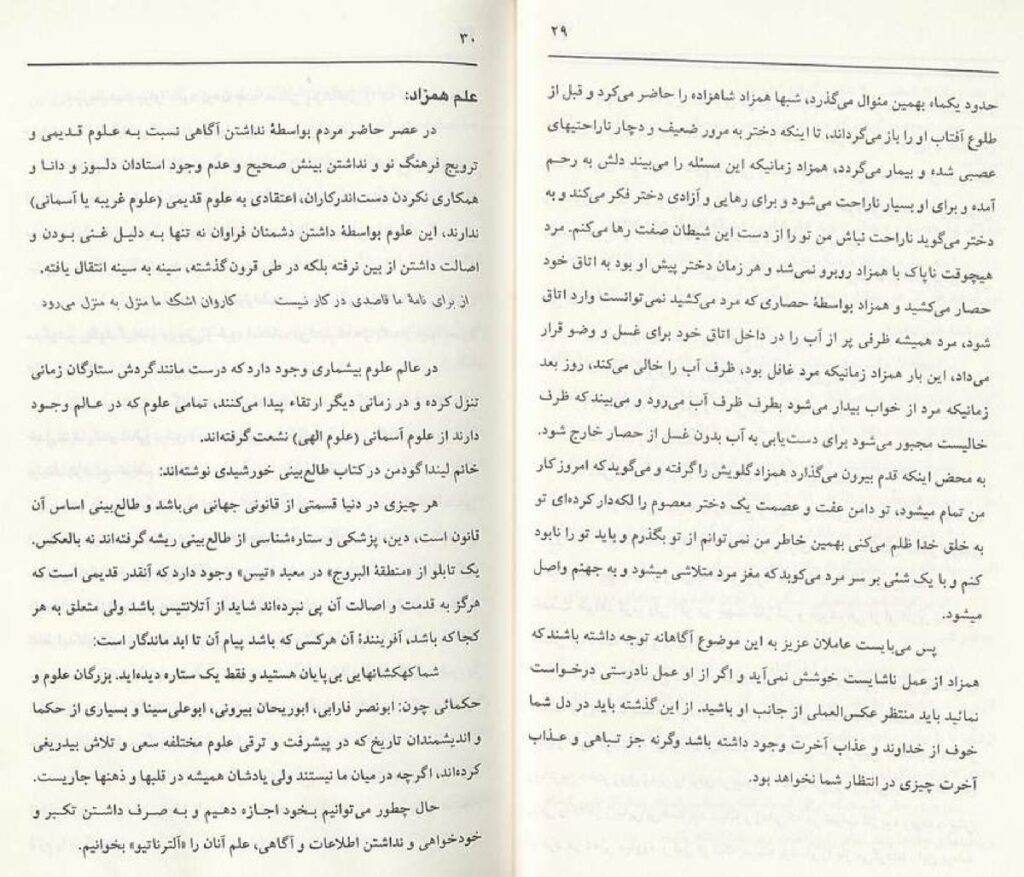 ۲۹
حدود یکماه بهمین منوال می‌گذرد، شبها همزاد شاهزاده را حاضر می‌کرد و قبل از
طلوع آفتاب او را باز می‌گرداند، تا اینکه دختر به مرور ضعیف و دچار ناراحتیهای
عصبی شده و بیمار می‌گردد، همزاد زمانیکه این مسئله را می‌بیند دلش به رحم
آمده و برای او بسیار ناراحت می‌شود و برای رهایی و آزادی دختر فکر می‌کند و به
دختر می‌گوید ناراحت نباش من تو را از دست این شیطان صفت رها می‌کنم. مرد
هیچوقت ناپاک با همزاد روبرو نمی‌شد و هر زمان دختر پیش او بود به اتاق خود
حصار می‌کشید و همزاد بواسطهٔ حصاری که مرد می‌کشید نمی‌توانست وارد اتاق
شود، مرد همیشه ظرفی پر از آب را در داخل اتاق خود برای غسل و وضو قرار
می‌داد، این بار همزاد زمانیکه مرد غافل بود، ظرف آب را خالی می‌کند، روز بعد
زمانیکه مرد از خواب بیدار می‌شود بطرف ظرف آب می‌رود و می‌بیند که ظرف
خالیست مجبور می‌شود برای دست‌یابی به آب بدون غسل از حصار خارج شود.
به محض اینکه قدم بیرون می‌گذارد همزاد گلویش را گرفته و می‌گوید که امروز کار
من تمام میشود، تو دامن عفت و عصمت یک دختر معصوم را لکه‌دار کرده‌ای تو
به خلق خدا ظلم می‌کنی بهمین خاطر من نمی‌توانم از تو بگذرم و باید تو را نابود
کنم و با یک شئی بر سر مرد می‌کوبد که مغز مرد متلاشی میشود و به جهنم واصل
میشود.
پس می‌بایست عاملان عزیز به این موضوع آگاهانه توجه داشته باشند که
همزاد از عمل ناشایست خوشش نمی‌آید و اگر از او عمل نادرستی درخواست
نمائید باید منتظر عکس‌العملی از جانب او باشید. از این گذشته باید در دل شما
خوف از خداوند و عذاب آخرت وجود داشته باشد وگرنه جز تباهی و عذاب
آخرت چیزی در انتظار شما نخواهد بود.
۳۰
علم همزاد:
در عصر حاضر مردم بواسطهٔ نداشتن آگاهی نسبت به علوم قدیمی و
ترویج فرهنگ نو و نداشتن بینش صحیح و عدم وجود استادان دلسوز و دانا و
همکاری نکردن دست‌اندرکاران، اعتقادی به علوم قدیمی (علوم غریبه یا آسمانی)
ندارند، این علوم بواسطهٔ داشتن دشمنان فراوان نه تنها به دلیل غنی بودن و
اصالت داشتن از بین نرفته بلکه در طی قرون گذشته، سینه به سینه انتقال یافته.
از برای نامهٔ ما قاصدی در کار نیست کاروان اشک ما منزل به منزل می‌رود
در عالم علوم بیشماری وجود دارد که درست مانند گردش ستارگان زمانی
تنزل کرده و در زمانی دیگر ارتقاء پیدا می‌کنند، تمامی علوم که در عالم وجود
دارند از علوم آسمانی (علوم الهی) نشعت گرفته‌اند.
خانم لیندا گودمن در کتاب طالع‌بینی خورشیدی نوشته‌اند:
هر چیزی در دنیا قسمتی از قانونی جهانی می‌باشد و طالع‌بینی اساس آن
قانون است، دین، پزشکی و ستاره‌شناسی از طالع‌بینی ریشه گرفته‌اند نه بالعکس.
یک تابلو از «منطقهٔ البروج» در معبد «تیس» وجود دارد که آنقدر قدیمی است که
هرگز به قدمت و اصالت آن پی نبرده‌اند شاید از آتلانتیس باشد ولی متعلق به هر
کجا که باشد، آفرینندهٔ آن هرکسی که باشد پیام آن تا ابد ماندگار است:
شما کهکشانهایی بی‌پایان هستید و فقط یک ستاره دیده‌اید. بزرگان علوم و
حکمائی چون: ابونصر فارابی، ابوریحان بیرونی، ابوعلی‌سینا و بسیاری از حکما
و اندیشمندان تاریخ که در پیشرفت و ترقی علوم مختلفه سعی و تلاش بیدریغی
کرده‌اند، اگرچه در میان ما نیستند ولی یادشان همیشه در قلبها و ذهنها جاریست.
حال چطور می‌توانیم بخود اجازه دهیم و به صرف داشتن تکبر و
خودخواهی و نداشتن اطلاعات و آگاهی، علم آنان را «آلترناتیو» بخوانیم.